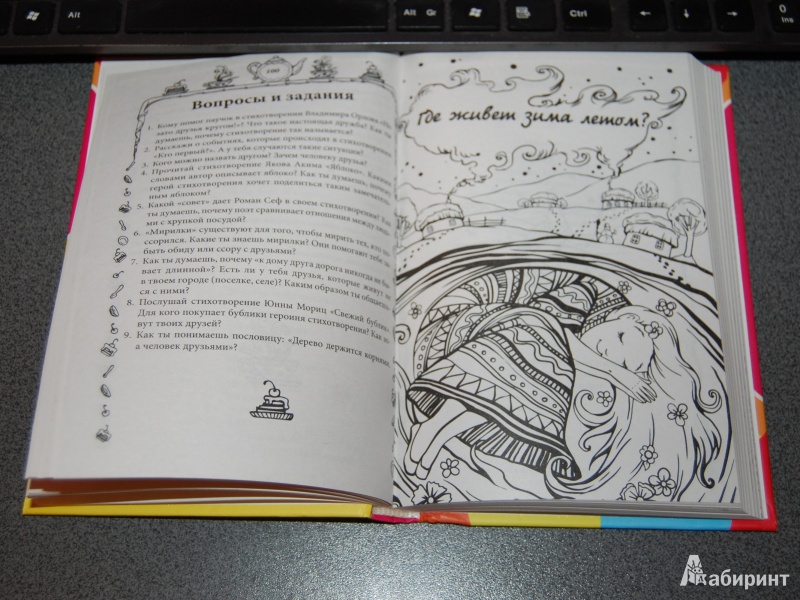 Alt
Alt Gr
Ctrl
0
Ins
100
Вопросы и задания
1. Кому помог паучок в стихотворении Владимира Орлова
зато друзья кругом!»? Что такое настоящая дружба? Как ты
думаешь, почему стихотворение так называется?
2. Расскажи о событиях, которые происходят в стихотворении
«Кто первый?». А у тебя случаются такие ситуации?
3. Кого можно назвать другом? Зачем человеку друзья?
4. Прочитай стихотворение Якова Акима «Яблоко». Какими
словами автор описывает яблоко? Как ты думаешь, почему
герой стихотворения хочет поделиться таким
ным яблоком?
5. Какой «совет» дает Роман Сеф в своем стихотворении? Как
ты думаешь, почему поэт сравнивает отношения между людь-
ми с хрупкой посудой?
6. «Мирилки» существуют для того, чтобы мирить тех, кто
ссорился. Какие ты знаешь мирилки? Они помогают тебе
быть обиду или ссору с друзьями?
7. Как ты думаешь, почему «к дому друга дорога никогда не бы-
вает длинной»? Есть ли у тебя друзья, которые живут не
в твоем городе (поселке, селе)? Каким образом ты общаешь-
ся с ними?
8. Послушай стихотворение Юнны Мориц «Свежий бублик».
Для кого покупает бублики героиня стихотворения? Как
вут твоих друзей?
9. Как ты понимаешь пословицу: «Дерево держится корнями,
а человек друзьями»?
Где живет зима летом?
Лабиринт